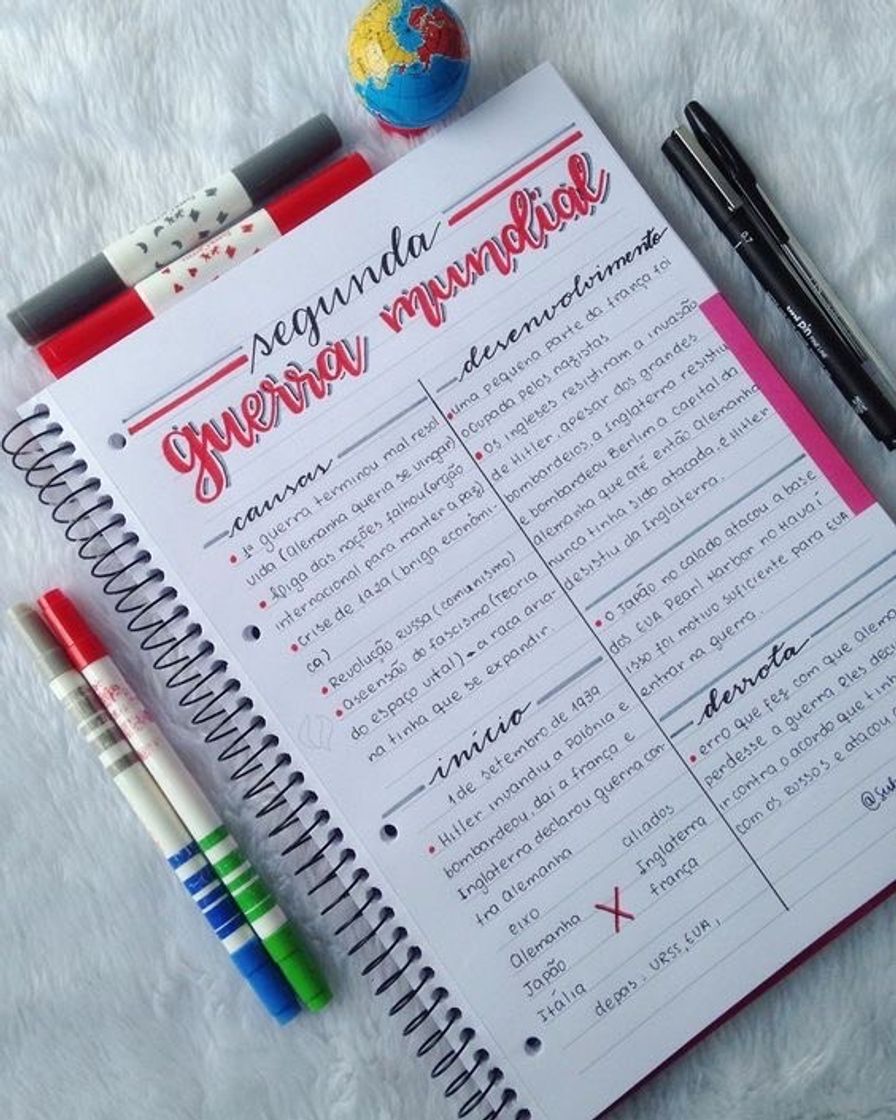 segunda
guerra mundial
causas
1ª guerra terminou mal resol
vida (Alemanha queria se vingar)
Aliga das nações falhou (orgão
internacional para manter a paz)
crise de 1929 (briga econômi-
ca)
Revolução Russa (comunismo)
ascensão do fascismo (Teoria
do espaço vital) → a raça aria-
na tinha que se expandir.
início
1 de setembro de 1939
Hitler invandiu a Polônia e
bombardeou, daí a frança e
Inglaterra declarou guerra con-
tra Alemanha
eixo
Alemanha
Japão
Itália
X
aliados
Inglaterra
frança
depois: URSS, EUA,
desenvolvimento
uma pequena parte da frança foi
ocupada pelos nazistas
Os ingleses resistiram a invasão
de Hitler, apesar dos grandes
bombardeios, a Inglaterra resistiu
e bombardeou Berlim a capital da
Alemanha que até então Alemanha
nunca tinha sido atacada, e Hitler
desistiu da Inglaterra.
O Japão no calado atacou a base
dos EUA Pearl Harbor no Havaí
isso foi motivo suficiente para EUA
entrar na guerra.
derrota
erro que fez com que Alem
perdesse a guerra Eles deci
ir contra o acordo que tin
com os Russos e atacou